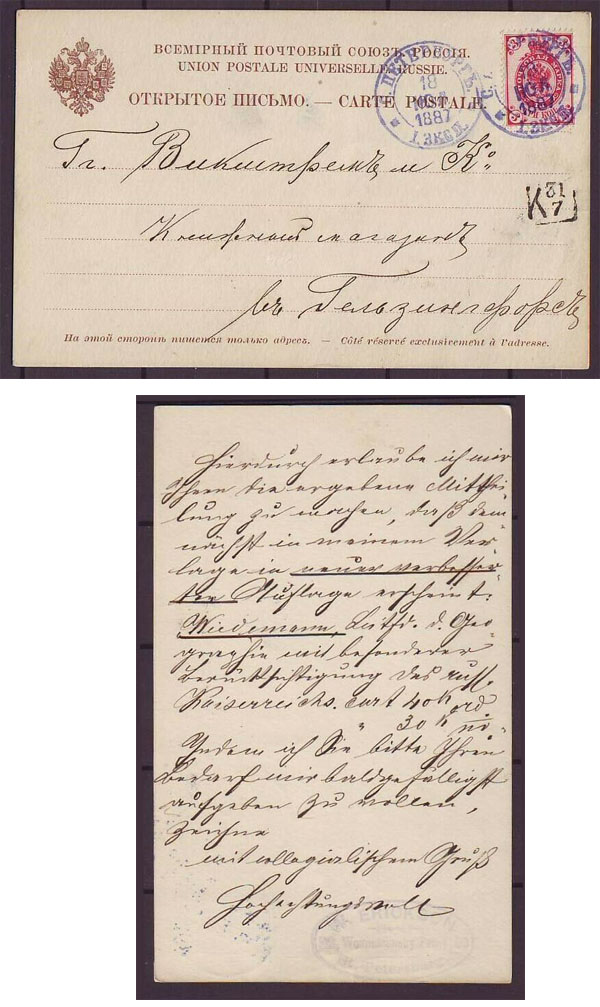 ВСЕМІРНЫЙ ПОЧТОВЫЙ СОЮЗЪ. РОССІЯ.
UNION POSTALE UNIVERSELLE. RUSSIE.
ОТКРЫТОЕ ПИСЬМО. — CARTE POSTALE.
ПЕТЕРБУРГЪ
18
ІЮЛ
1887
1. ЭКСП.
ІЮЛ
1887
1. ЭКСП.
Гг. Викштремъ и Кº
K 31
7
Книжный магазинъ
въ Гельзингфорсъ
На этой сторонѣ пишется только адресъ. — Côté réservé exclusivement à l'adresse.
Hierdurch erlaube ich mir
Ihnen die ergebene Mitthei
lung zu machen, daß dem
nächst in meinem Ver
lage in neuer verbesser
ter Auflage erscheint:
Wiedemann, Leitfd. d. Geo
graphie mit besonderer
Berücksichtigung des russ.
Kaiserreichs. cart 40 K ord
" 30 K no
Indem ich Sie bitte Ihren
Bedarf mir baldgefälligst
aufgeben zu wollen,
zeichne
mit collegialischem Gruß
Hochachtungsvoll
St. Petersburg